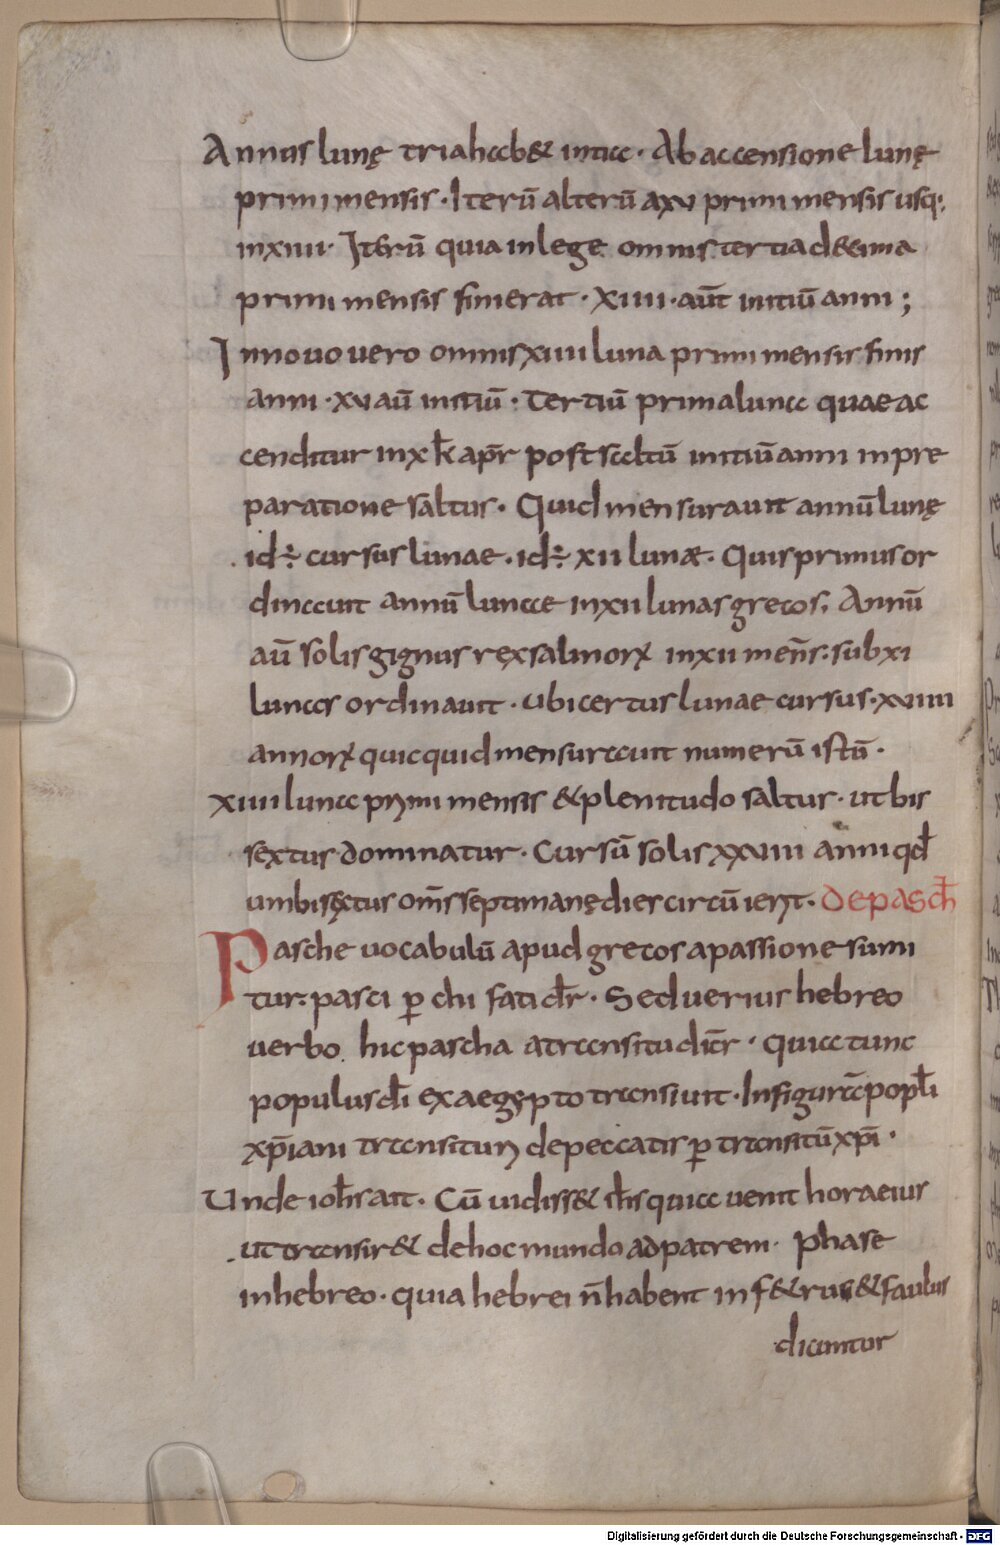 Annus lunę tria hab& initia · Ab accensione lunę
primi mensis · Iterū alterū a xv primi mensis usq;
in xiiii · Iterū quia in lege omnis tertia decima
primi mensis finierat · xiiii · aūt initiū anni ;
In novo vero omnis xiiii luna primi mensis finis
anni · xv aū initiū · Tertiū prima luna quae ac
cenditur in x kł apr̄ post saltū initiū anni in pre
paratione saltus · Quid mensuravit annū lunę
id ÷ cursus lunae · id ÷ xii lunæ · Quis primus or
dinavit annū lunae in xii lunas grecos, Annū
aū solis gignus rex salinorꝝ in xii mens̄ : sub xi
lunas ordinavit · ubi certus lunae cursus · xviiii
annorꝝ quicquid mensuravit numerū istū ·
xiiii luna primi mensis & plenitudo saltus · ut bis
sextus dominatur · Cursū solis xxviiii anni qđ
um bisęctus om̄s septimanę dies circū ier̄t · De pasch̄
Pasche uocabulū apud grecos a passione sumi
tur : pasci ꝑ chi fati dr̄ · Sed uerius hebreo
verbo hic pascha a transitu dicr̄ · quia tunc
populus dī ex aegypto transiuit · In figurā popłi
xp̄iani transitur de peccatis ꝑ transitū xp̄i ·
Unde ioħs ait · Cū uidiss& iħs quia uenit hora eius
ut transir& de hoc mundo ad patrem · Phase
in hebreo · quia hebrei n̄ habent inf&rus & faulus
dicuntur
Digitalisierung gefördert durch die Deutsche Forschungsgemeinschaft - DFG